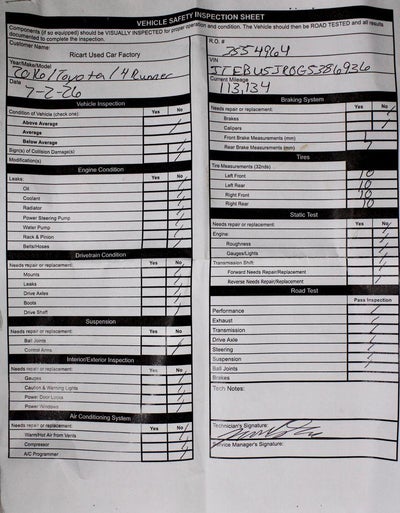 VEHICLE SAFETY INSPECTION SHEET
Components (if so equipped) should be VISUALLY INSPECTED for proper operation and condition. The Vehicle should then be ROAD TESTED and all results
documented to complete the inspection.
Customer Name:
Ricart Used Car Factory
Year/Make/Model
2016/Toyota/4 Runner
Date
7-2-26
Vehicle Inspection
Condition of Vehicle (check one): Yes No
Above Average
Average
Below Average
Sign(s) of Collision Damage(s)
Modification(s)
Engine Condition
Leaks: Yes No
Oil
Coolant
Radiator
Power Steering Pump
Water Pump
Rack & Pinion
Belts/Hoses
Drivetrain Condition
Needs repair or replacement: Yes No
Mounts
Leaks
Drive Axles
Boots
Drive Shaft
Suspension
Needs repair or replacement: Yes No
Ball Joints
Control Arms
Interior/Exterior Inspection
Needs repair or replacement: Yes No
Gauges
Caution & Warning Lights
Power Door Locks
Power Windows
Air Conditioning System
Needs repair or replacement: Yes No
Warm/Hot Air from Vents
Compressor
A/C Programmer
R.O. #
7554964
VIN
JTEBU5JR0G5386936
Current Mileage
113,134
Braking System
Needs repair or replacement: Yes No
Brakes
Calipers
Front Brake Measurements (mm)
Rear Brake Measurements (mm)
Tires
Tire Measurements (32nds)
Left Front 10
Left Rear 10
Right Front 10
Right Rear 10
Static Test
Needs repair or replacement: Yes No
Engine:
Roughness
Gauges/Lights
Transmission Shift:
Forward Needs Repair/Replacement
Reverse Needs Repair/Replacement
Road Test
Pass Inspection
Performance
Exhaust
Transmission
Drive Axle
Steering
Suspension
Ball Joints
Brakes
Tech Notes:
Technician's Signature:
Service Manager's Signature: